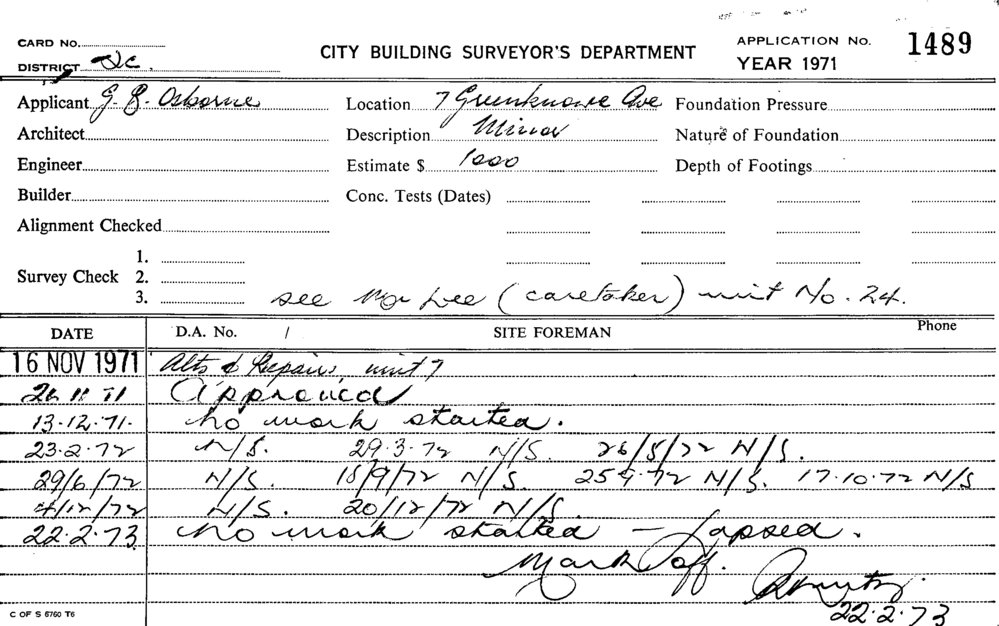 CARD No.
CITY BUILDING SURVEYOR'S DEPARTMENT
APPLICATION No. 1489
DISTRICT
YEAR 1971
Applicant Osborne Location 7 Greenknowe Ave Foundation Pressure
Architect Description Minor Nature of Foundation
Engineer Estimate $ 1000 Depth of Footings
Builder Conc. Tests (Dates)
Alignment Checked
1.
Survey Check 2.
3. see Mr Lee (caretaker) unit No. 24.
DATE D.A. No. / SITE FOREMAN Phone
16 NOV 1971 Alts & Repairs, unit 7
26 11 71 Approved
13.12.71. No work started.
23.2.72 N/S. 29.3.72 N/S. 26/5/72 N/S.
29/6/72 N/S. 18/9/72 N/S. 25.9.72 N/S. 17.10.72 N/S
4/12/72 N/S. 20/12/72 N/S.
22.2.73 No work started - lapsed.
Mark off.
22.2.73
C OF S 5760 T6